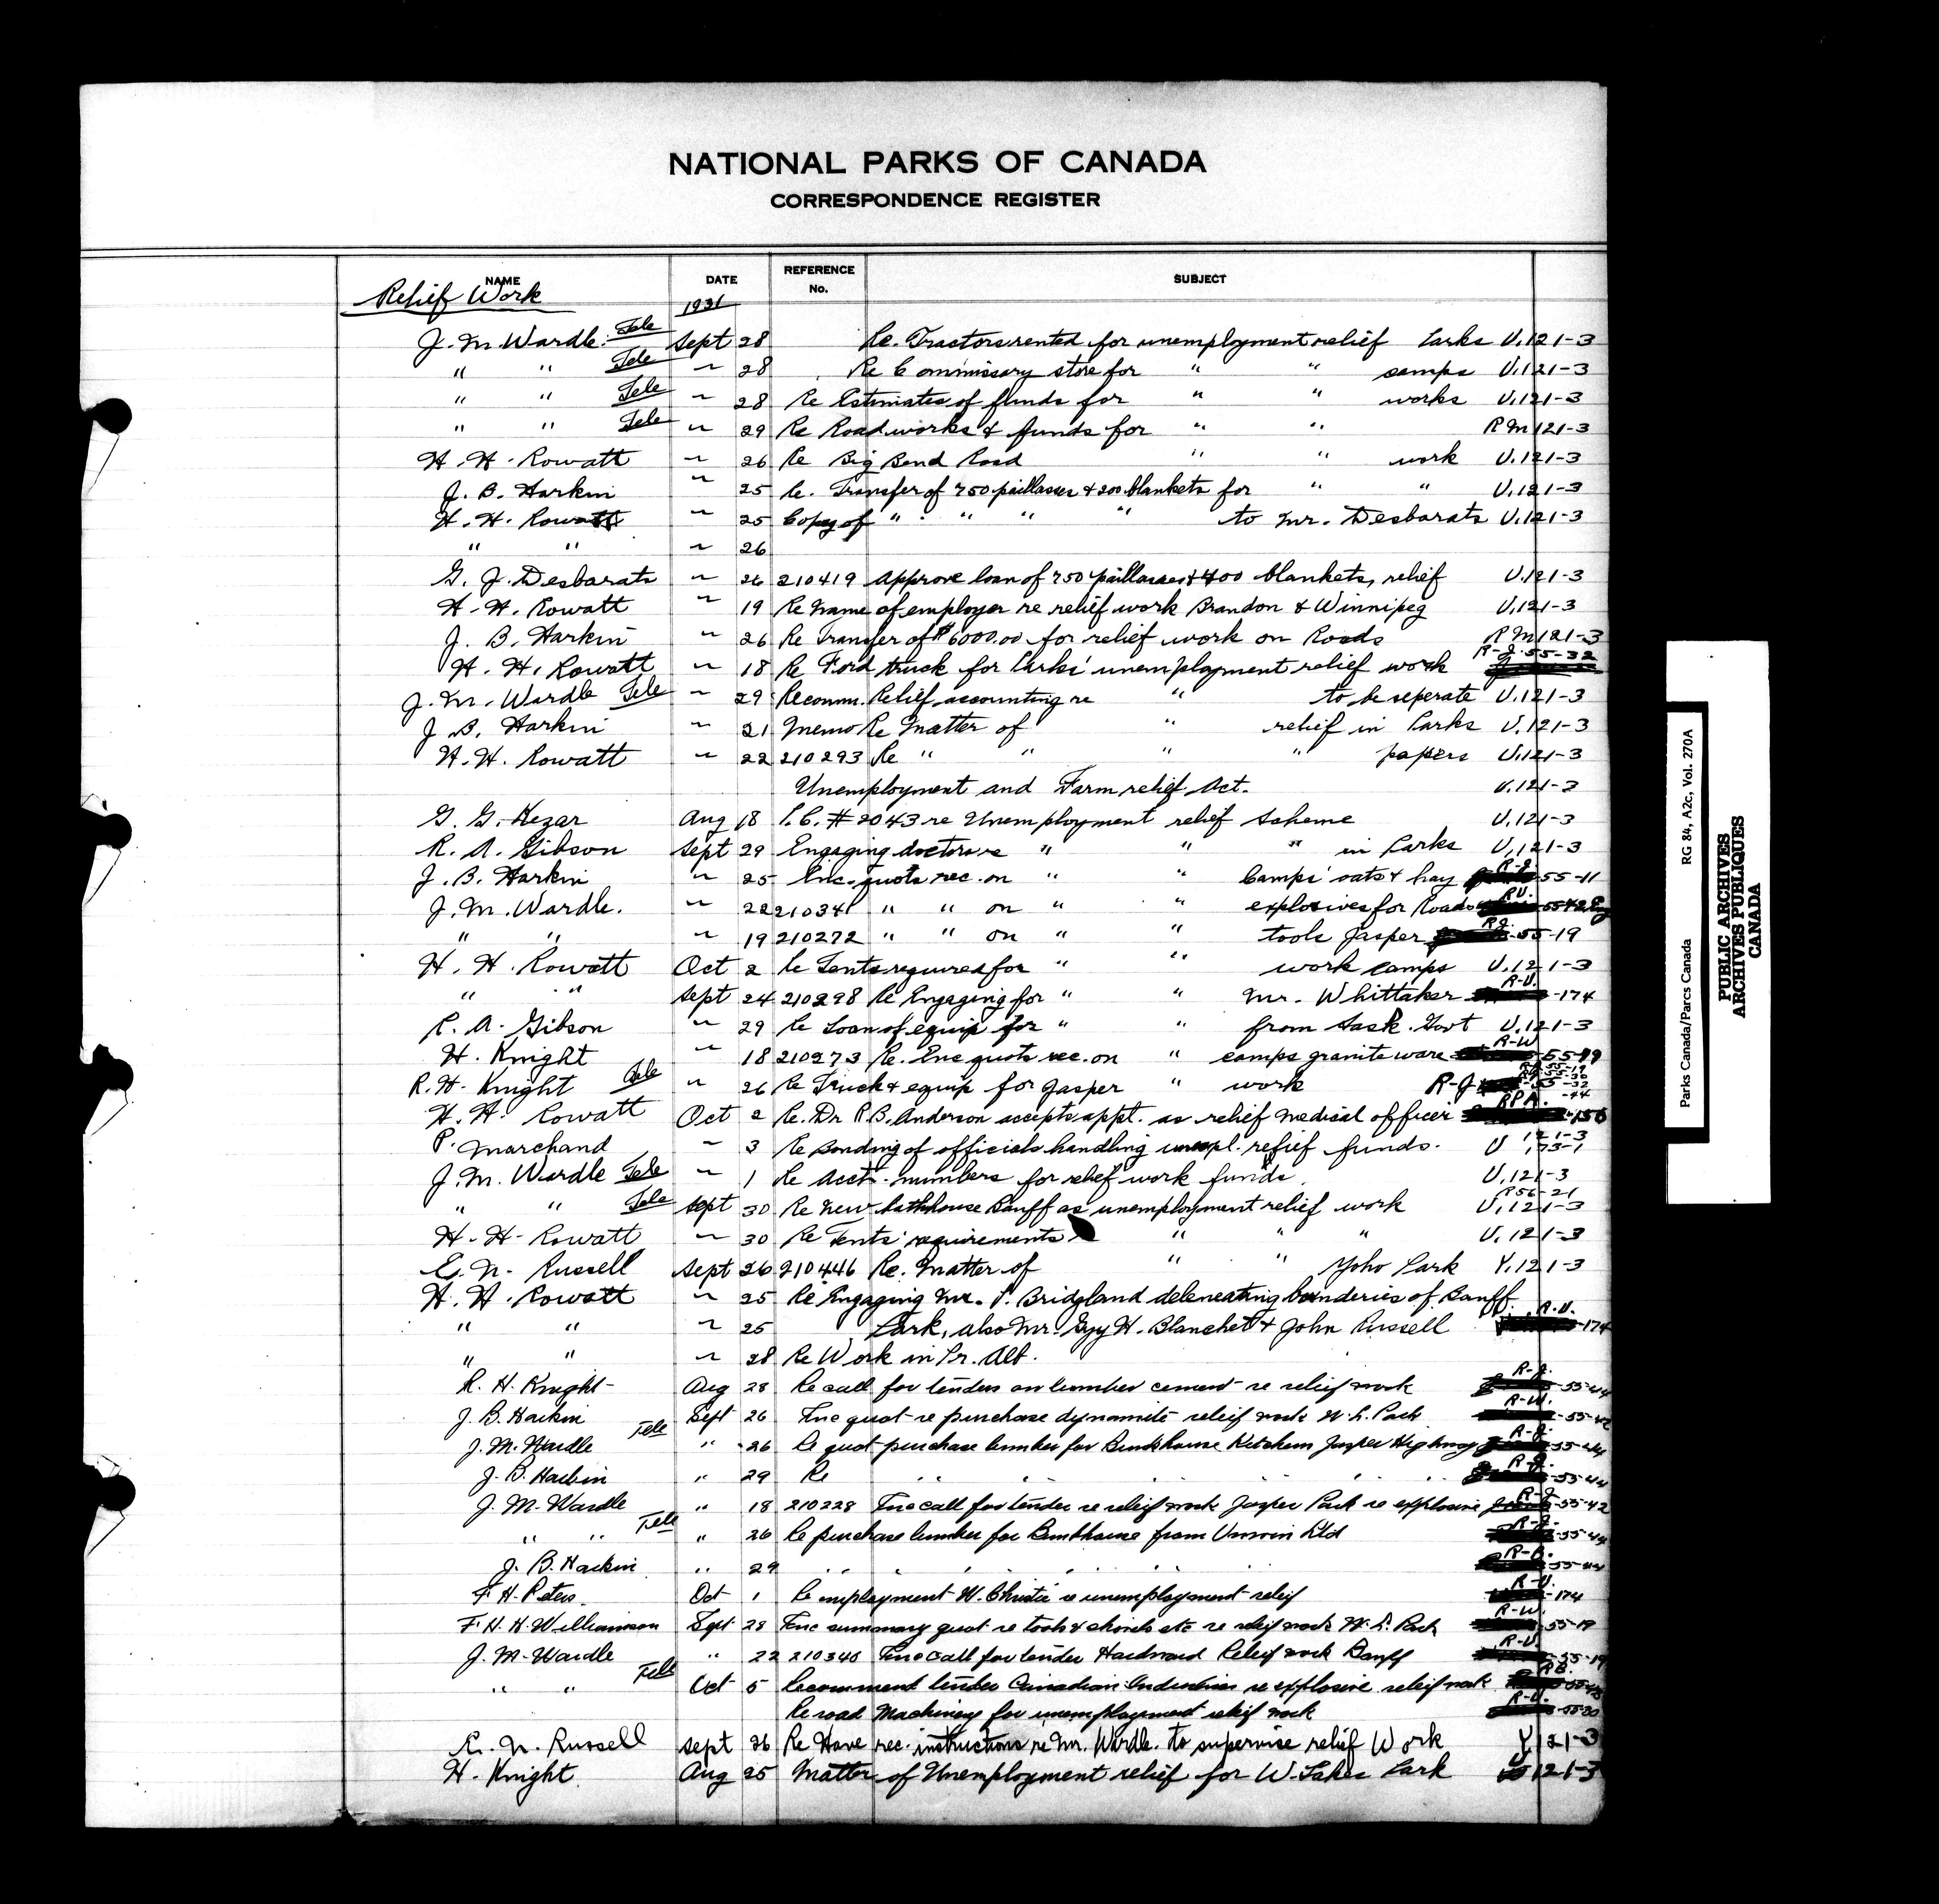 NATIONAL PARKS OF CANADA
CORRESPONDENCE REGISTER
NAME DATE REFERENCE No. SUBJECT
Relief Work 1931
J. M. Wardle. Tele Sept 28 Re. Tractors rented for unemployment relief Parks U.121-3
" " Tele " 28 Re Commissary store for " " camps U.121-3
" " Tele " 28 Re Estimates of funds for " " works U.121-3
" " Tele " 29 Re Road works & funds for " " R M 121-3
H. H. Rowatt " 26 Re Big Bend Road " " work U.121-3
J. B. Harkin " 25 Re. Transfer of 750 paillasses & 200 blankets for " " U.121-3
H. H. Rowatt " 25 Copy of " " " " to Mr. Desbarats U.121-3
" " " 26
G. J. Desbarats " 26 210419 Approve loan of 750 paillasses & 400 blankets, relief U.121-3
H. H. Rowatt " 19 Re Name of employer re relief work Brandon & Winnipeg U.121-3
J. B. Harkin " 26 Re Transfer of $6000.00 for relief work on Roads R M 121-3
H. H. Rowatt " 18 Re Ford truck for Parks' unemployment relief work R-J-55-32
J. M. Wardle Tele " 29 Recomm. Relief accounting re " to be seperate U.121-3
J. B. Harkin " 21 Memo Re Matter of " relief in Parks U.121-3
H. H. Rowatt " 22 210293 Re " " " papers U.121-3
Unemployment and Farm relief Act. U.121-3
G. G. Hezar Aug 18 P.C. #2043 re Unemployment relief Scheme U.121-3
R. A. Gibson Sept 29 Engaging doctors re " " " in Parks U.121-3
J. B. Harkin " 25 Enc. quots rec. on " " Camps' oats & hay R-J. 55-11
J. M. Wardle. " 22 210341 " " on " " explosives for Roads R.U. 55-42
" " " 19 210272 " " on " " tools Jasper RJ. 55-19
H. H. Rowatt Oct 2 Re Tents required for " " work camps U.121-3
" " Sept 24 210298 Re Engaging for " " Mr. Whittaker R-U. -174
R. A. Gibson " 29 Re Loan of equip for " " from Sask. Govt U.121-3
H. Knight " 18 210273 Re. Enc quots rec. on " camps granite ware R-W 55-19
R. H. Knight Tele " 26 Re Truck & equip for Jasper " work R-J 55-32
H. H. Rowatt Oct 2 Re. Dr R.B. Anderson accepts appt. as relief medical officer RPA. -156
P. Marchand " 3 Re Bonding of officials handling unempl. relief funds. U 121-3
J. M. Wardle Tele " 1 Re Acct. numbers for relief work funds. U.121-3
" " Tele Sept 30 Re New bathhouse Banff as unemployment relief work R56-21 U.121-3
H. H. Rowatt " 30 Re Tents requirements " " " U.121-3
E. N. Russell Sept 26 210446 Re. Matter of " " Yoho Park Y.121-3
H. H. Rowatt " 25 Re Engaging Mr. P. Bridgland deleneating bounderies of Banff
" " " 25 Park, also Mr. Guy H. Blanchet & John Russell R.U. -174
" " " 28 Re Work in Pr. Alb.
R. H. Knight Aug 28 Re call for tenders on lumber cement re relief work R-J. 55-44
J. B. Harkin Sept 26 Enc quot re purchase dynamite relief work W. L. Park R-W. 55-42
J. M. Wardle Tele " 26 Re quot purchase lumber for Bunkhouse Kitchens Jasper Highway R-J. 55-44
J. B. Harkin " 29 Re " " " " " R-J. 55-44
J. M. Wardle " 18 210228 Enc call for tender re relief work Jasper Park re explosive R-J 55-42
" " Tele " 26 Re purchase lumber for Bunkhouse from Unwin Ltd R-J. 55-44
J. B. Harkin " 29 " " " " R-B. 55-44
F. H. Peters. Oct 1 Re employment W. Christie re unemployment relief R-U. -174
F. H. H. Williamson Sept 28 Enc summary quot re tools & etc re relief work W. L. Park R-W. 55-19
J. M. Wardle " 22 210340 Enc call for tender Hardward Relief work Banff R-U. 55-19
" " Tele Oct 5 Recommend tender Canadian Industries re explosive relief work RB.
Re road Machinery for unemployment relief work R-U. 55-30
E. N. Russell Sept 26 Re Have rec. instructions re Mr. Wardle. to supervise relief Work Y.121-3
H. Knight Aug 25 Matter of Unemployment relief for W. Lakes Park 121-3
Parks Canada/Parcs Canada RG 84, A2c, Vol. 270A
PUBLIC ARCHIVES
ARCHIVES PUBLIQUES
CANADA